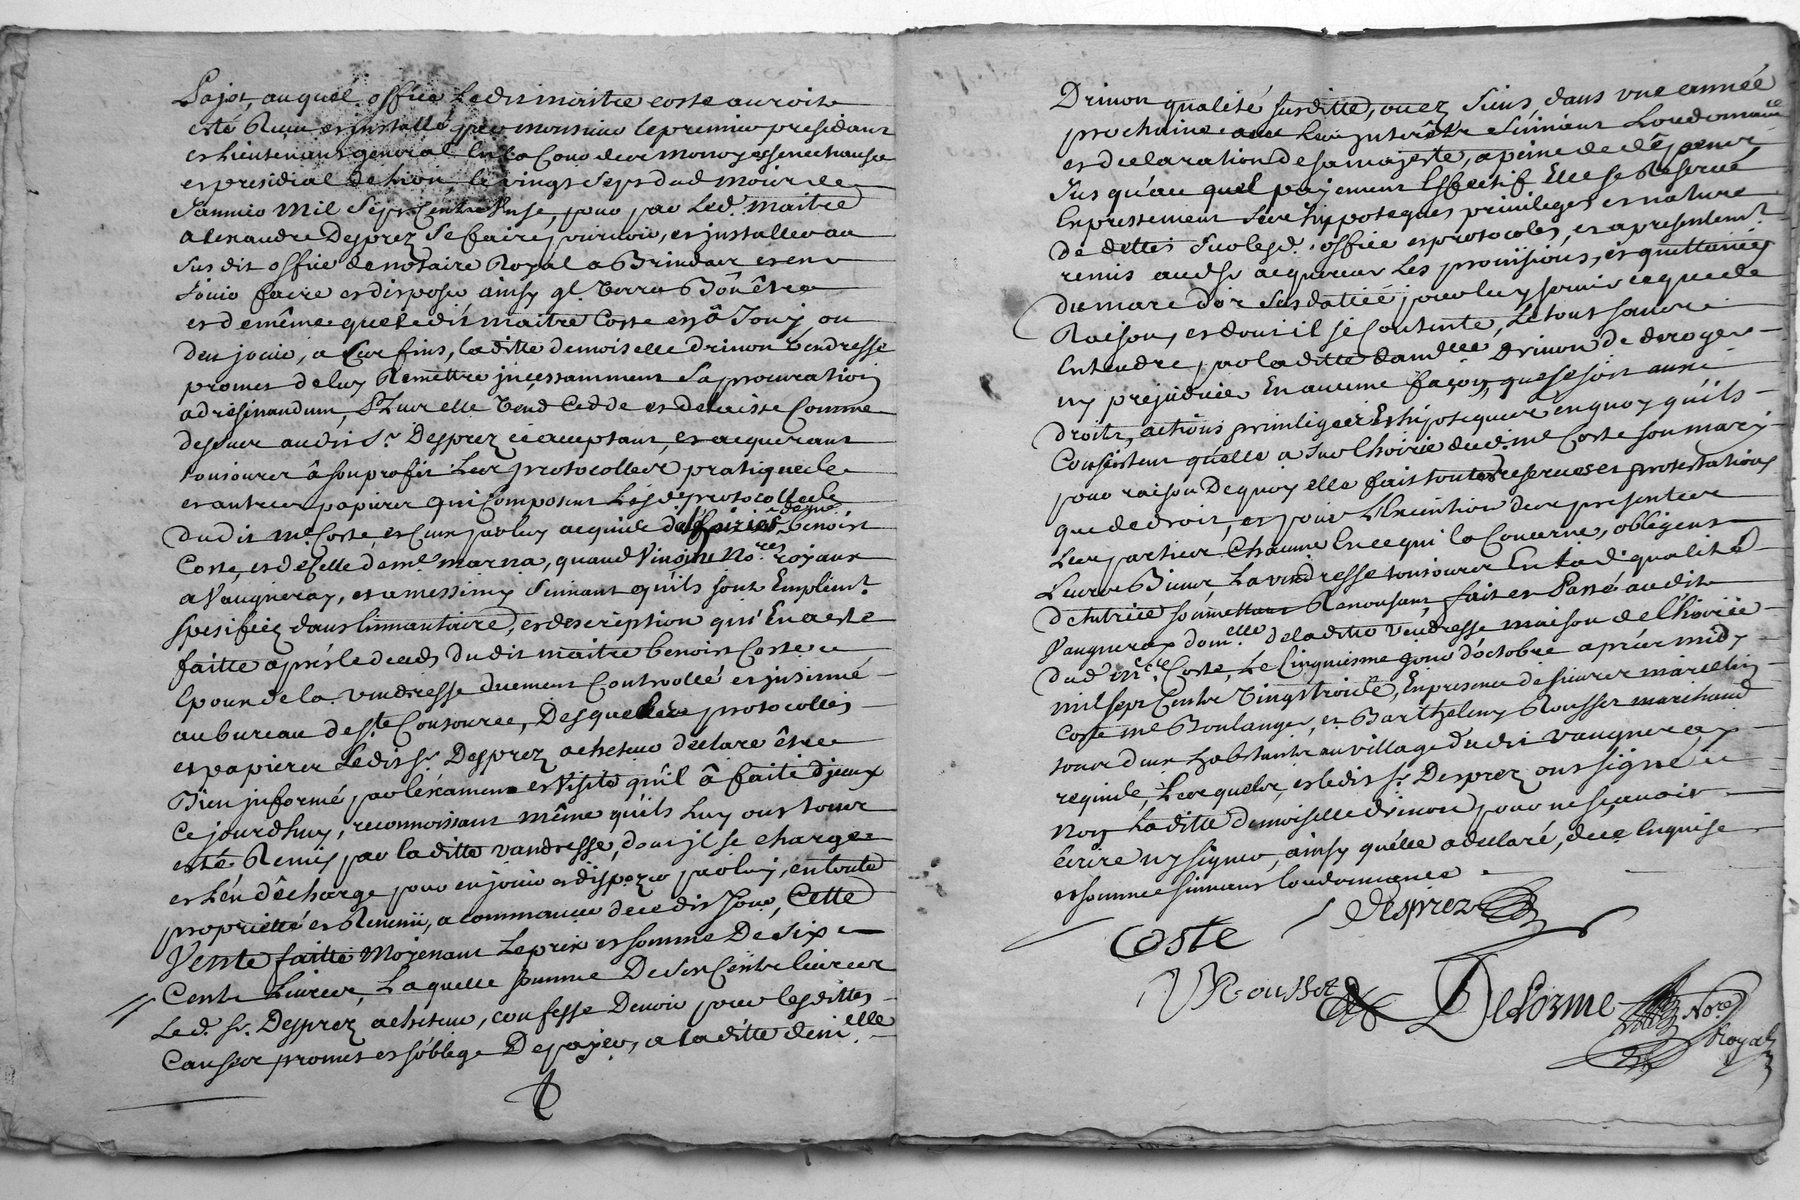 Pajot, auquel office Ledit maitre coste auroit
esté Receu et installé par monsieur le premier president
et Lieutenant general En la Cour des Monoyes senechaussee
et presidial de Lion, le vingt sept dud. mois de
Janvier Mil Sept Cents Onse, pour par Led. Maitre
alexandre Desprez Se faire pourvoir, et installer au
susdit office de notaire Royal a Brindas et en
Jouir faire et disposer ainsy ql. Verra Bon être
et de même que Ledit maitre Coste en â Jouy ou
deu jouir, a Ces fins, laditte demoiselle drimon Vendresse
promet de luy Remettre incessamment Sa procuration
ad resinandum, Plus elle Vend Cedde et delaisse Comme
dessus audit Sr. Desprez icy acceptant, et acquerant
tousjours â son profit Les protocolles pratiques
et autres papiers qui Composent Les protocolles
dudit me. Coste, et Ceux par luy acquis de benoist
Coste, et de Celle de me. marna, quand Vivoint Nores. royaux
a Vaugneray, et a messimy Suivant qu'ils sont Emplemt.
spesifiéz dans linvantaire, et description qui En a esté
faitte aprés le deceds Dudit maitre benoist Coste
Epoux de la vendresse duement Controollé et insinué
au bureau de ste. Consource, Desquels protocolles
et papiers Ledit Sr. Desprez acheteur déclare être
Bien informé, par lexamen et Visite qu'il â faite d'jceux
Ce jourdhuy, reconnoissant même qu'ils Luy ont tous
esté Remis par laditte vandresse, dont jl se charge
et Len décharge pour en jouir et disposer par luy, en toute
proprietté et Revenu, a commancer de ce dit Jour, Cette
Vente faitte Moyenant Le prix et somme De Six
Cents Livres, Laquelle somme De Six Cents livres
Led. Sr. Desprez acheteur, confesse Devoir pour lesdittes
Causes promet et soblige De payer, a laditte demlle
Drimon qualité susditte, ou ez Siens, dans une année
prochaine avec Les Interêts Suivant Lordonnance
et declaration de sa majesté, a peine de dépens
Jusqu'au quel payement Effectif Elle se Reserve
Expressement Ses hippoteques privileges et nature
de dettes Sur lesd. office et protocoles, et a presentemt.
remis audt. Sr acquereur Les provisions, et quittances
du marc d'or Susdattéés pour luy servir ce que de
Raison, et dont il se Contente, Le tout sans
Entendre par laditte damlle. Drimon de deroger
ny prejudicier En aucune façon, que ce soit aux
droits, actions privileges Et hipoteques en quoy qu'ils
Consistent quelle a sur lhoirie dud. me. Coste son mary
pour raison Dequoy elle fait toutes reserves et protestations
que de droit, et pour Lexecution des presentes
Les parties Chacune En ce qui la Concerne, obligent
Leurs Biens, La vendresse tousjours En lad. qualité
de tutrice soumettant Renonsant, fait et Passé audit
Vaugneray domlle. de laditte Vendresse maison de l'hoirie
dud. me. Coste, Le Cinquiesme jour d'octobre aprés midy
mil sept Cents Vingt trois, En presence de sieurs marcellin
Coste me. Boulanger, et Barthelemy Rousset marchand
tous deux habitants au village dudit Vaugneray
requis, Lesquels, et ledit Sr. Desprez ont signé
Non Laditte demoiselle drimon pour ne sçavoir
êcrire ny signer, ainsy quélle a declaré, de ce Enquise
et sommée suivant lordonnance
Desprez
Coste
Rousset
Delorme Nore.
Royal